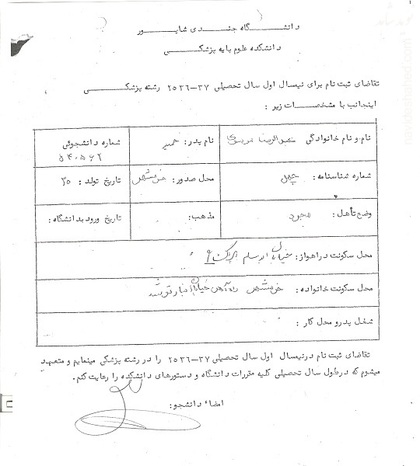 دانشگاه جندی شاپور
دانشکده علوم پایه پزشکی
تقاضای ثبت نام برای نیمسال اول سال تحصیلی ۳۷-۲۵۳۶ رشته پزشکی
اینجانب با مشخصات زیر :
نام و نام خانوادگی نام پدر: شماره دانشجوئی
شماره شناسنامه : محل صدور: خرمشهر تاریخ تولد : ۳۵
وضع تأهل : مجرد مذهب: تاریخ ورود بدانشگاه :
محل سکونت در اهواز : خیابان
محل سکونت خانواده : خرمشهر راه آهن خیابان انبار
شغل پدر و محل کار :
تقاضای ثبت نام در نیمسال اول سال تحصیلی ۳۷-۲۵۳۶ را در رشته پزشکی مینمایم و متعهد
میشوم که در طول سال تحصیلی کلیه مقررات دانشگاه و دستورهای دانشکده را رعایت کنم.
امضاء دانشجو: